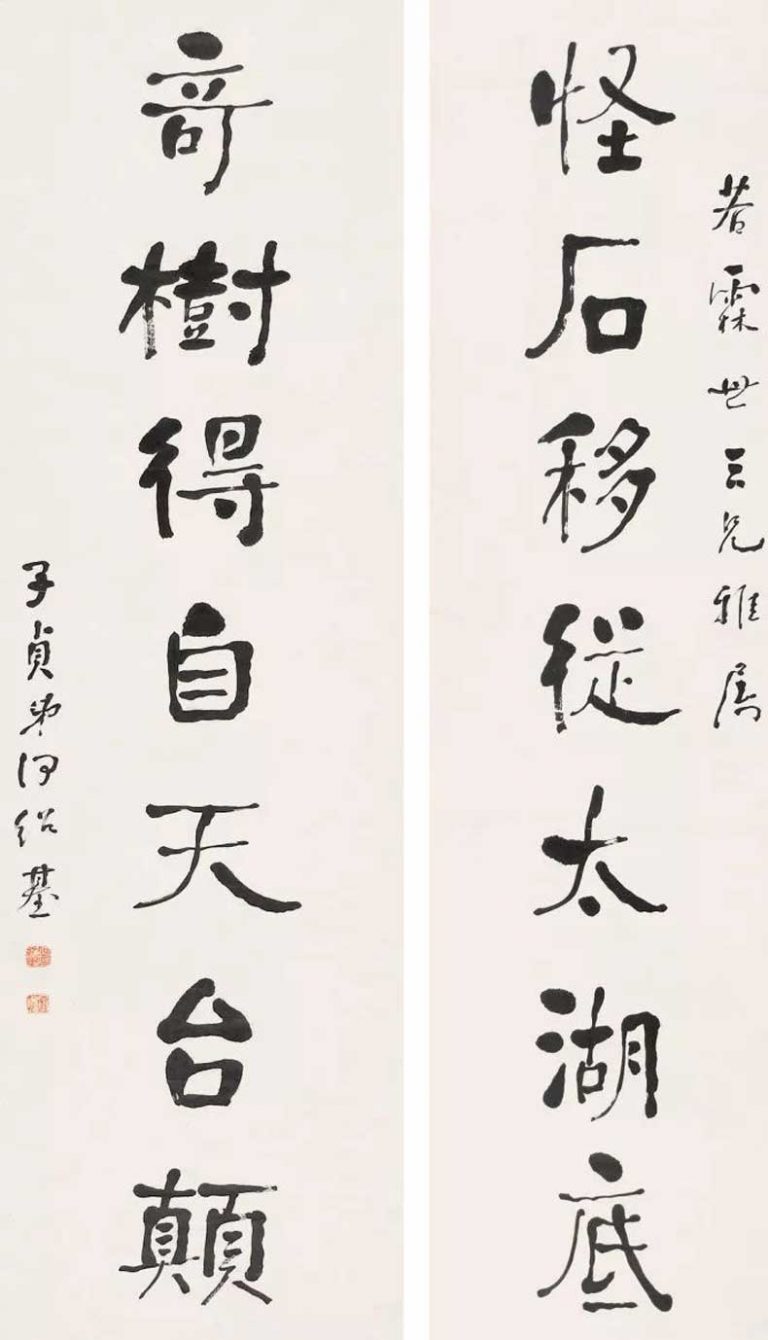 若霖世三兄雅属
怪石移從太湖底
奇樹得自天台顛
子貞弟何紹基